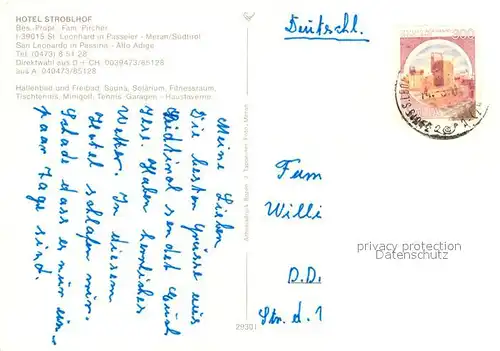 HOTEL STROBLHOF
Bes.-Propr. Fam. Pircher
I-39015 St. Leonhard in Passeier - Meran/Südtirol
San Leonardo in Passiria - Alto Adige
Tel. (0473) 8 51 28
Direktwahl aus D + CH 0039473/85128
aus A 040473/85128
Hallenbad und Freibad, Sauna, Solarium, Fitnessraum,
Tischtennis, Minigolf, Tennis, Garagen - Haustaverne
Meine Lieben
Die besten Grüsse aus
Südtirol sendet Euch
Haben herrliches
Wetter. In diesem
Hotel schlafen wir.
Schade dass es nur ein
paar Tage sind.
29301
Deutschl.
300
Fam
Willi
D.D.
Str. d. 1
privacy protection
Datenschutz